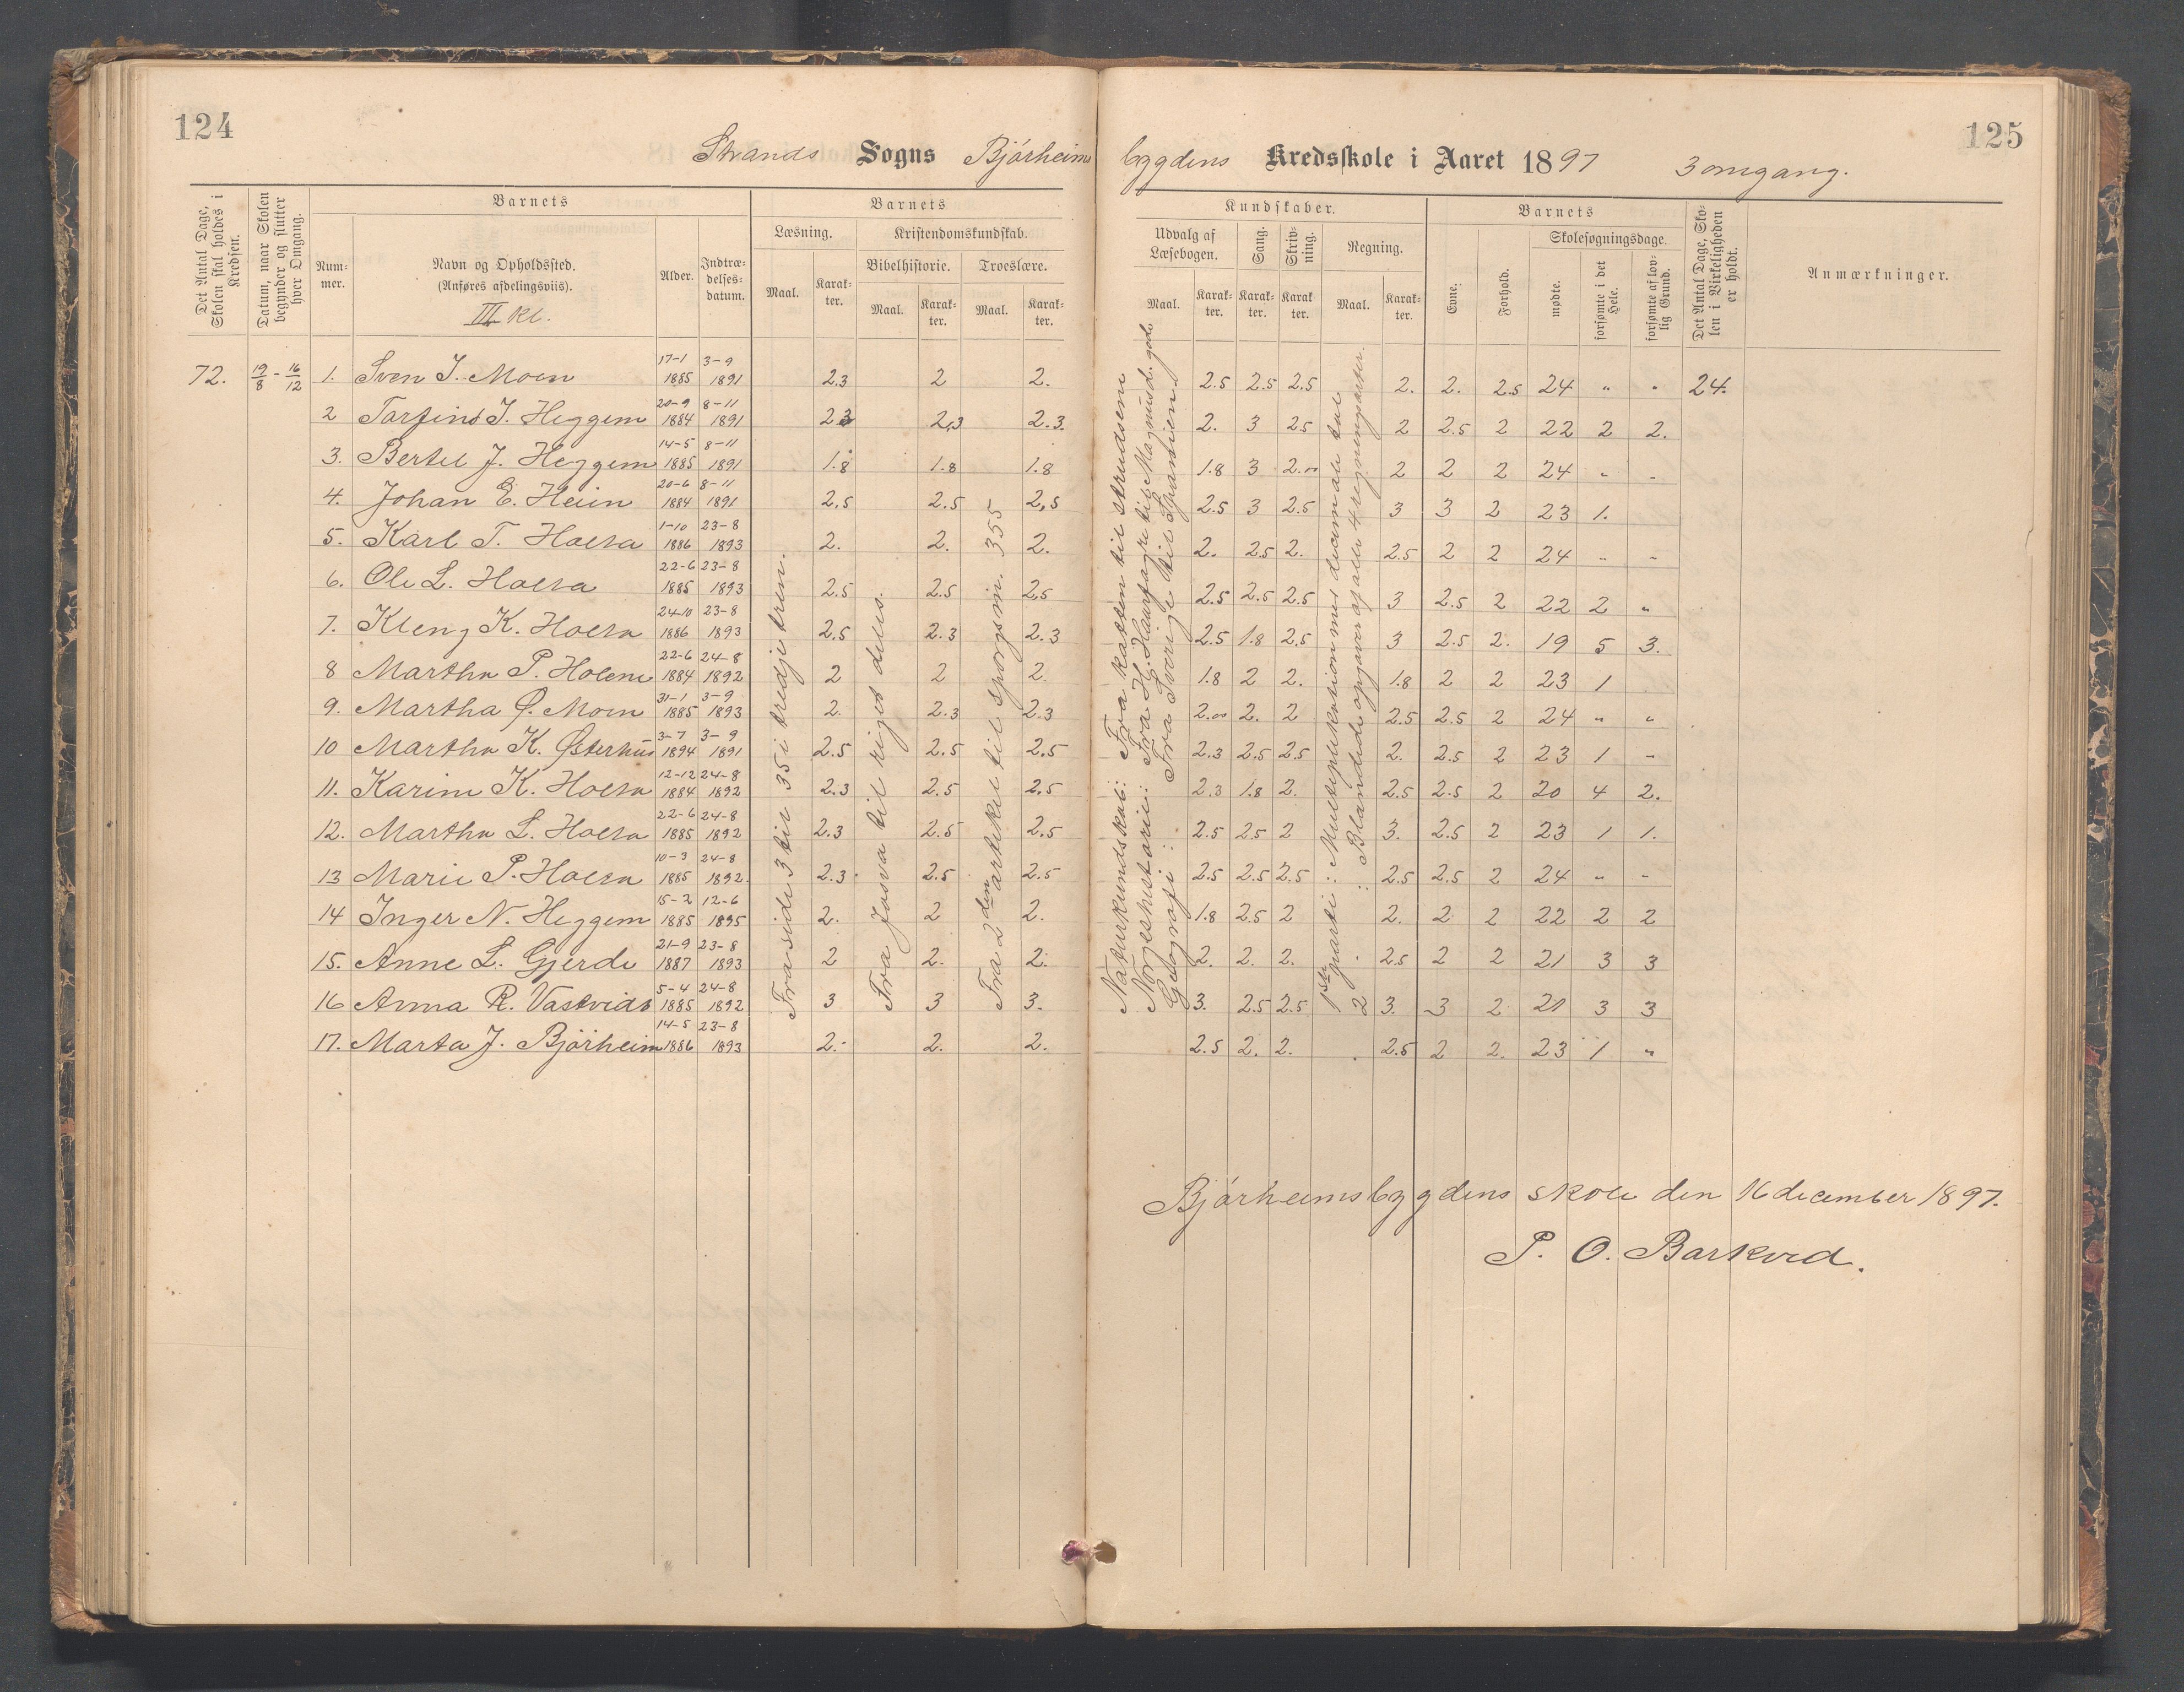 124
125
Strands Sogns Bjórheims bygdens Kredsskole i Aaret 1897 3 omgang.
Det Antal Dage, Skolen skal holdes i Kredsen.
Datum, naar Skolen begynder og slutter hver Omgang.
Barnets
Nummer.
Navn og Opholdssted.
(Anføres afdelingsviis).
III kl.
Alder.
Indtrædelsesdatum.
Barnets
Læsning.
Maal.
Karakter.
Kristendomskundskab.
Bibelhistorie.
Maal.
Karakter.
Troeslære.
Maal.
Karakter.
Kundskaber.
Udvalg af Læsebogen.
Maal.
Karakter.
Sang.
Karakter.
Skrivning.
Karakter.
Regning.
Maal.
Karakter.
Barnets
Evne.
Forhold.
Skolesøgningsdage.
mødte.
forsømte i det Hele.
forsømte af lovlig Grund.
Det Antal Dage, Skolen i Virkeligheden er holdt.
Anmærkninger.
72. 19/8 - 16/12 1. Sven J. Moen 17-1 1885 3-9 1891 2.3 2 2. 2.5 2.5 2.5 2. 2. 2.5 24 " " 24.
2 Torfind J. Heggem 20-9 1884 8-11 1891 2.3 2,3 2.3. 2. 3 25 2 2.5 2 22 2 2.
3. Bertel J. Heggem 14-5 1885 8-11 1891 1.8 1.8 1.8 1.8 3 2.00 2 2 2 24 " "
4. Johan E. Heien 20-6 1884 8-11 1891 2.5 2.5 2,5 2.5 3 2.5 3 3 2 23 1.
5. Karl T. Holta 1-10 1886 23-8 1893 2. 2. 2. 2. 2.5 2. 2.5 2 2 24 " "
6. Ole L. Holta 22-6 1885 23-8 1893 2.5 2.5 2.5 2.5 2.5 2.5 3 2.5 2 22 2 "
7. Kleng K. Holta 24-10 1886 23-8 1893 2.5 2.3 2.3 2.5 1.8 2.5 3 2.5 2. 19 5 3.
8 Martha P. Holene 22-6 1884 24-8 1892 2 2 2. 1.8 2 2. 1.8 2 2 23 1
9. Martha Ø. Moen 31-1 1885 3-9 1893 2. 2.3 2.3 2.00 2. 2 2.5 2.5 2 24 " "
10 Martha K. Østerhus 3-7 1894 3-9 1891 2.5 2.5 2.5 2.3 2.5 2.5 2. 2.5 2 23 1 "
11. Karine K. Holta 12-12 1884 24-8 1892 2.3 2.5 2.5 2.3 1.8 2. 2.5 2.5 2 20 4 2.
12. Martha L. Holta 22-6 1885 24-8 1892 2.3 2.5 2.5 2.5 2.5 2 3. 2.5 2 23 1 1.
13 Marie P. Holta 10-3 1885 24-8 1892. 2.3 2.5 2.5 2.5 2.5 2.5 2.5 2.5 2 24 " "
14 Inger N. Heggem 15-2 1885 12-6 1895 2. 2 2. 1.8 2.5 2 2. 2 2 22 2 2
15. Anne L. Gjerde 21-9 1887 23-8 1893 2 2. 2. 2. 2. 2. 2.5 2 2 21 3 3
16 Anna R. Vastvido 5-4 1885 24-8 1892 3 3 3. 3. 2.5 2.5 3. 3 2 21 3 3
17. Marta J. Bjórheim 14-5 1886 23-8 1893 2. 2. 2. 2.5 2. 2. 2.5 2 2. 23 1 "
Fra side 3 til 35 i tredje trin.
Fra Josva til riget deles.
Fra 2den artikel til sporgsm. 355
Naturkundskab: Fra katten til strudsen
Norgeshistorie: Fra H. Haarfagre til Magnus d. gode
Geografi: Fra Sverige til Spanien.
1ste parti: Multiplikation med decimale tal
2 : Blandede opgaver af alle 4 regningsarter.
Bjórheimsbygdens skole den 16 december 1897.
P. O. Barkved.